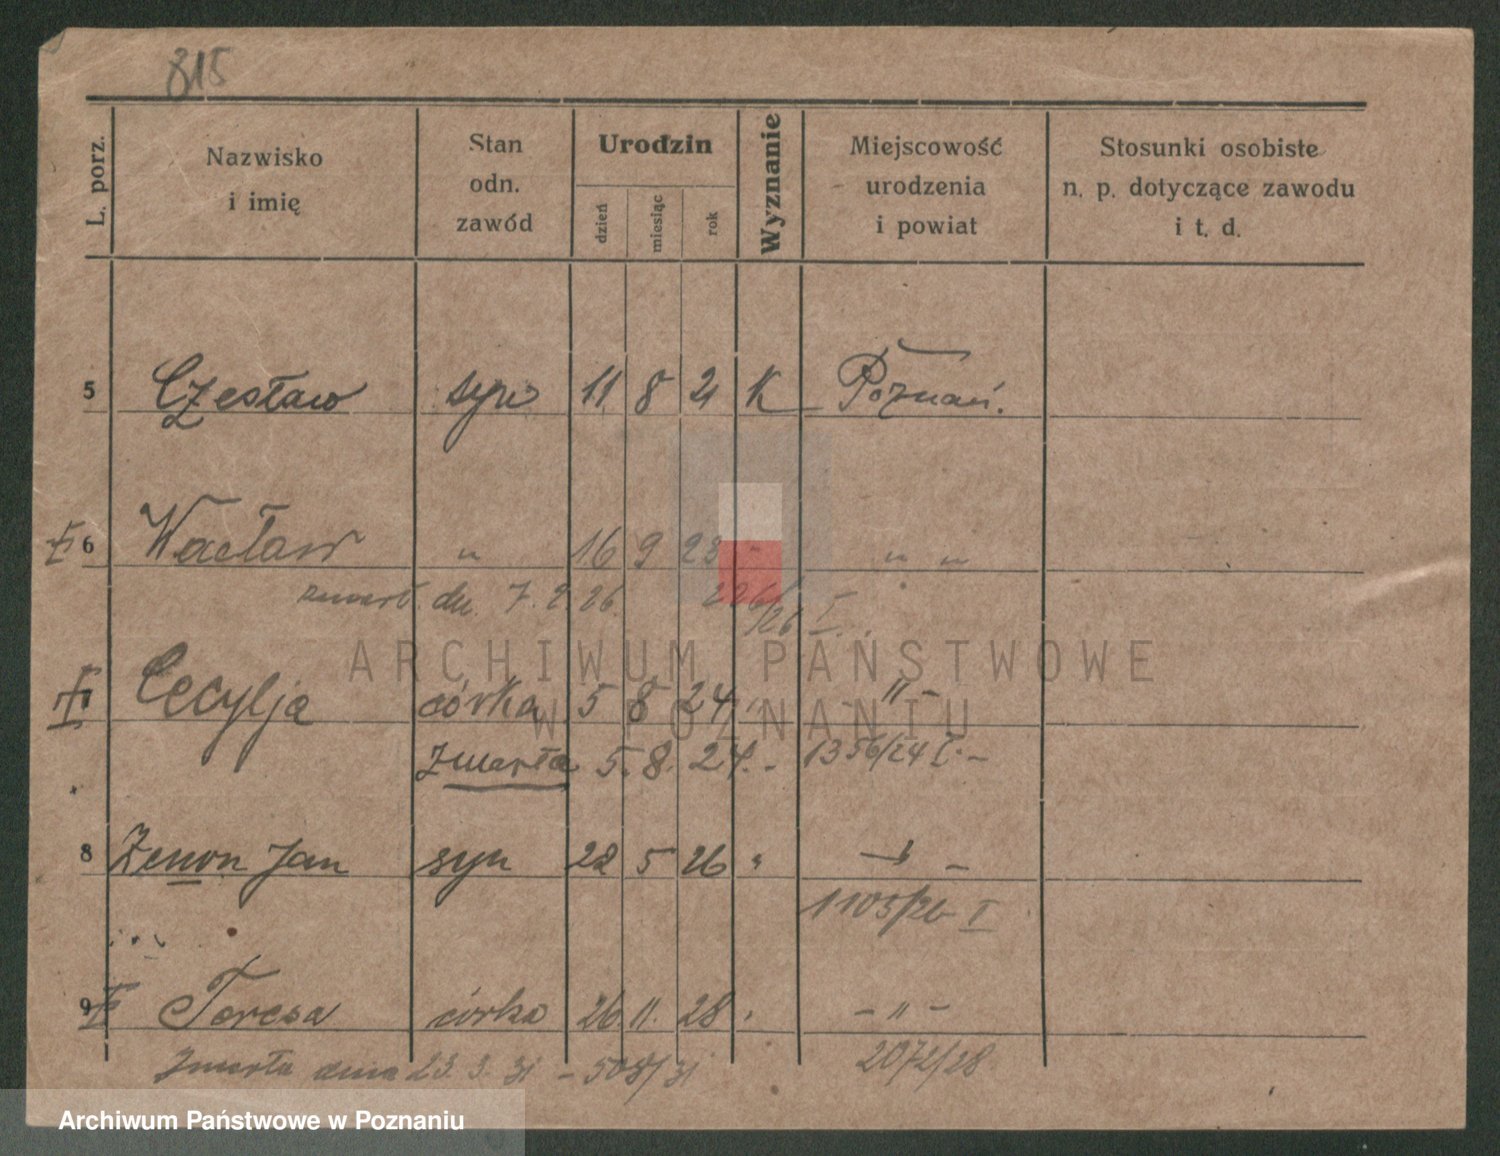 815
L. porz.
Nazwisko i imię
Stan odn. zawód
Urodzin
dzień miesiąc rok
Wyznanie
Miejscowość urodzenia i powiat
Stosunki osobiste n. p. dotyczące zawodu i t. d.
5 Czesław syn 11 8 21 K Poznań.
6 Wacław " 16 9 23 " " "
zmarł. dn. 7. 2. 26. 226/26 I.
7 Cecylja córka 5 8 24 " " -
zmarła 5. 8. 24. - 1356/24 I. -
8 Zenon Jan syn 22 5 26 " - " -
1105/26 I
9 Teresa córka 26 11. 28 " - " -
Zmarła dnia 13. 3. 31 - 508/31 2072/28
ARCHIWUM PAŃSTWOWE
W POZNANIU
Archiwum Państwowe w Poznaniu